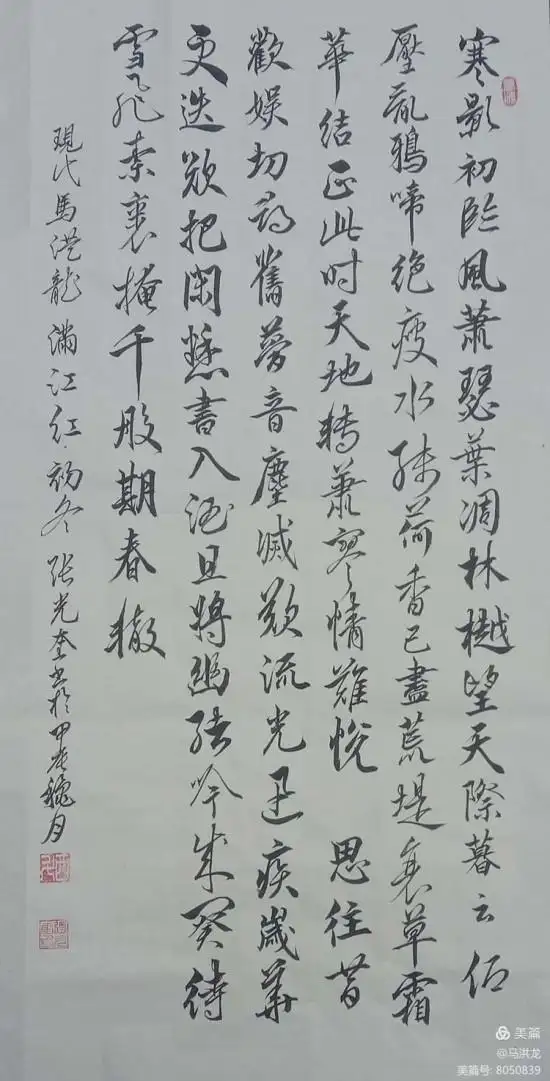 寒影初临風蕭瑟葉凋林樾望天際暮云低
壓亂鴉啼絶瘦水殘荷香已盡荒堤衰草霜
華結正此时天地轉蕭寥情難悅 思往昔
歡娱切尋舊夢音塵滅歎流光迅疾歲華
更迭欲把閑愁書入酒且將幽緒吟成闋待
雪飛素裹掩千般期春轍
現代馬洪龍滿江红初冬張光奎书於甲辰穐月
美篇
@马洪龙
美篇号: 8050839